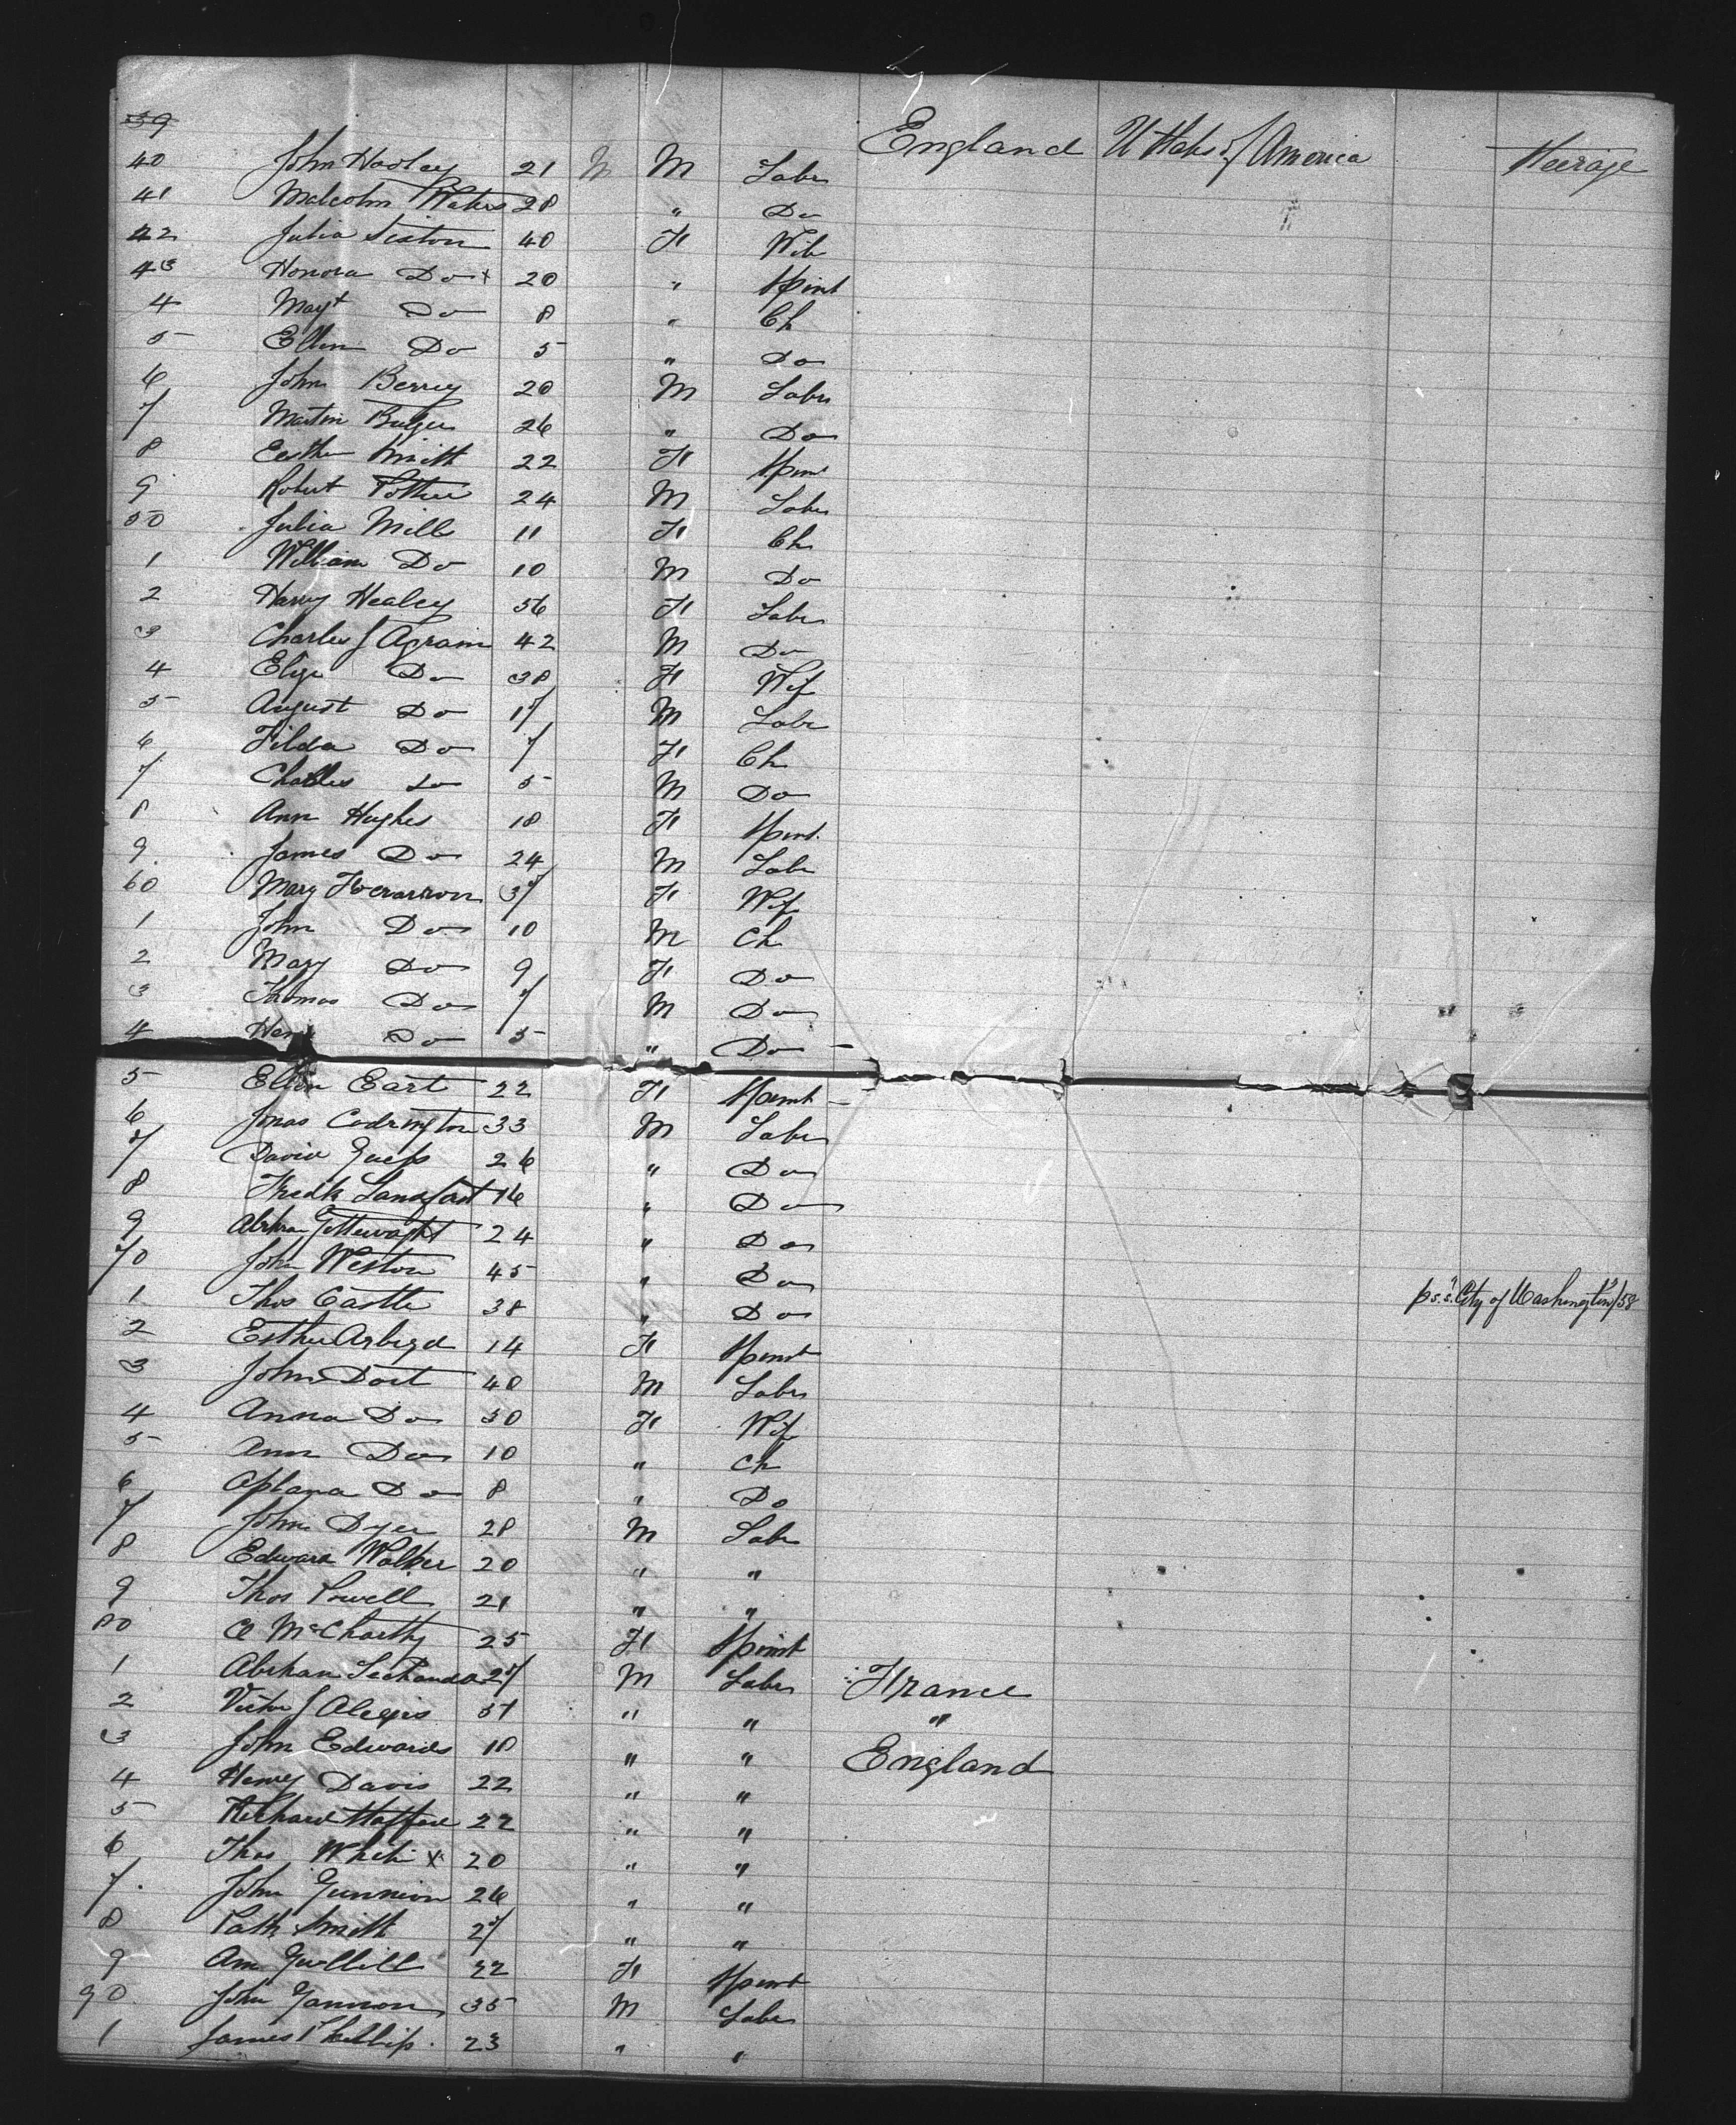 39 England U States of America Steerage
40 John Hooley 21 M Labr
41 Malcolm Waters 28 " Do
42 Julia Sexton 40 F Wife
43 Honora Do x 20 " Spinst
4 Mayt Do 8 " Ch
5 Ellen Do 5 " Do
6 John Berry 20 M Labr
7 Martin Bulger 26 " Do
8 Eesther Smith 22 F Spins
9 Robert 24 M Labr
50 Julia Mills 11 F Ch
1 William Do 10 M Do
2 Harry Healey 56 F Labr
3 Charles J Agram 42 M Do
4 Eliza Do 38 F Wife
5 August Do 17 M Labr
6 Tilda Do 7 F Ch
7 Charles Do 5 M Do
8 Ann Hughes 18 F Spinst.
9 James Do 24 M Labr
60 Mary 37 F Wife
1 John Do 10 M Ch
2 Mary Do 9 F Do
3 Thomas Do 7 M Do
4 Do 5 " Do
5 Ellen East 22 F Spinst
6 Jonas Codrington 33 M Labr
7 David 26 " Do
8 Fredk 16 " Do
9 24 " Do
70 John Weston 45 " Do
1 Thos Castle 38 " Do p s.s. "City of Washington" 3/58
2 Esther 14 F Spinst
3 John Dort 40 M Labr
4 Anna Do 30 F Wife
5 Ann Do 10 " Ch
6 Do 8 " Do
7 John Dyer 28 M Labr
8 Edward Walker 20 " "
9 Thos Powell 21 " "
80 C McCharthy 25 F Spinst
1 Abrham 27 M Labr France
2 Victor J Alexis 31 " " "
3 John Edwards 18 " " England
4 Henry Davis 22 " "
5 Richard Stafford 22 " "
6 Thos White x 20 " "
7 John Gunnion 26 " "
8 Patk Smith 27 " "
9 Ann 22 F Spinst
90 John Gannon 35 M Labr
1 James Phillips. 23 " "